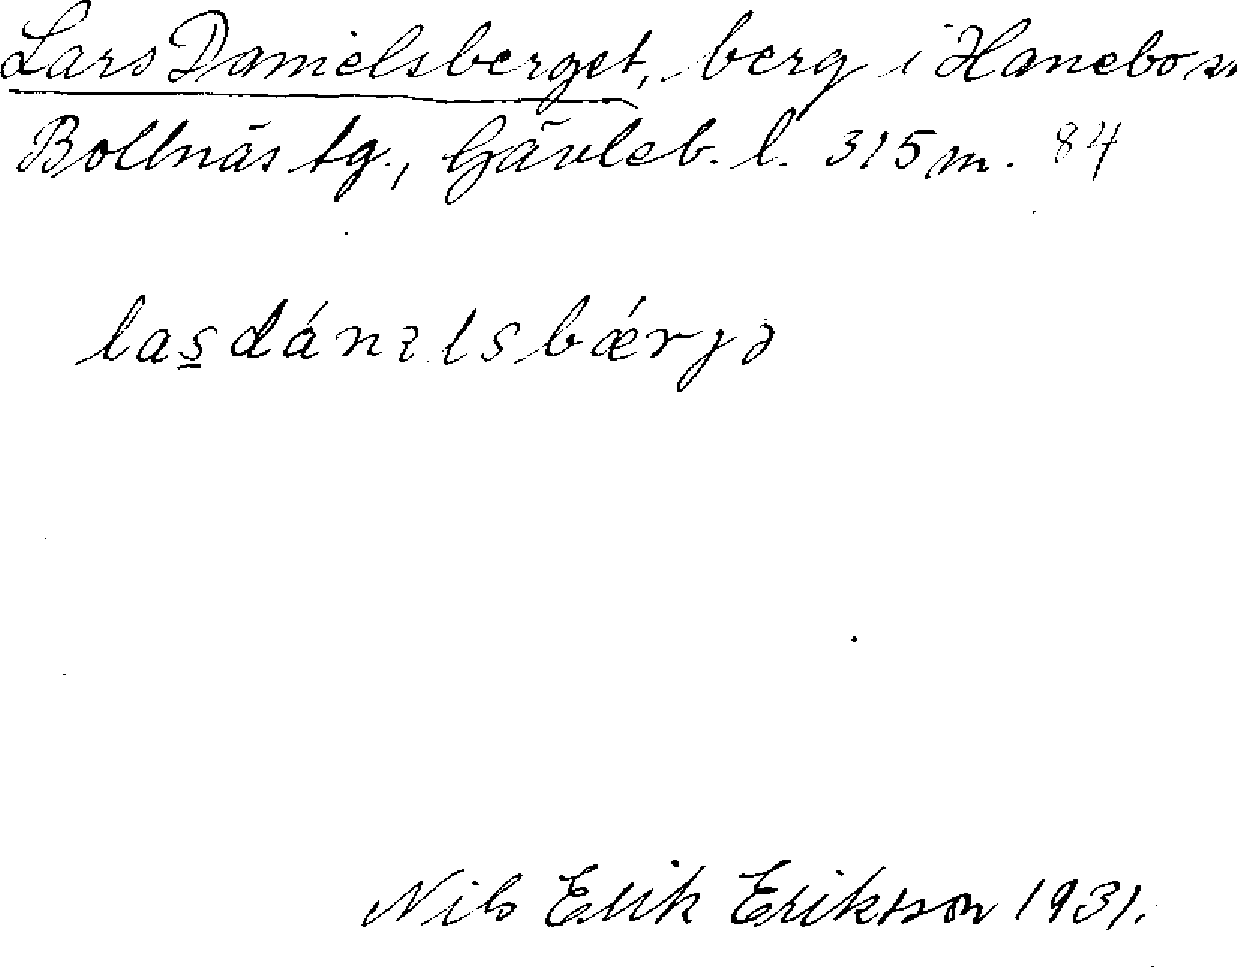 Lars Danielsberget, berg i Hanebo sn
Bollnäs tg., Gävleb. l. 315 m. 84
las̲dánɩlsbǽrjə
Nils Erik Eriksson 1931.